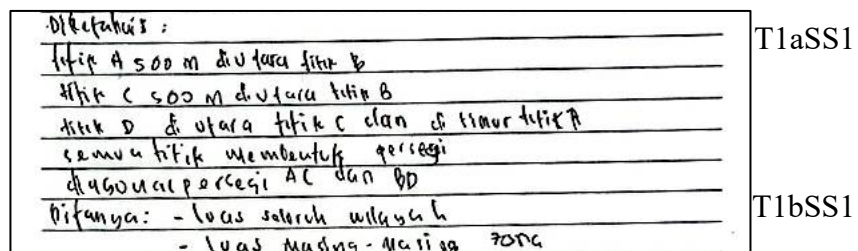 Diketahui :
T1aSS1
titik A 500 m diutara titik B
titik C 500 m diutara titik B
titik D di utara titik C dan di timur titik A
semua titik membentuk persegi
diagonal persegi AC dan BD
Ditanya: - luas seluruh wilayah
T1bSS1
- luas masing-masing zona